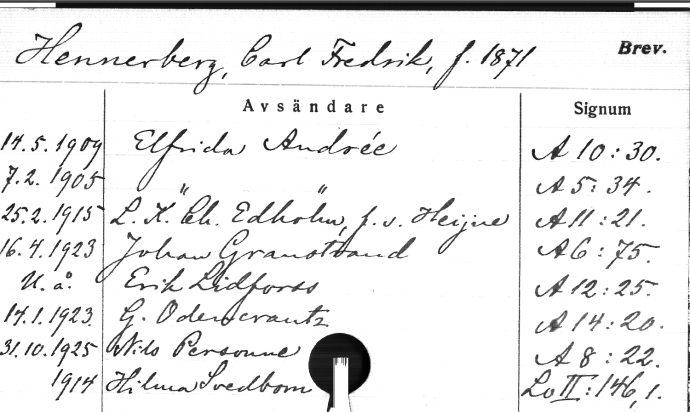 Hennerberg, Carl Fredrik, f. 1871 Brev.
Avsändare Signum
14.5.1909 Elfrida Andrée A 10:30.
7.2.1905 A 5:34.
25.2.1915 L. K. Ch. Edholm, f. v. Heijne A 11:21.
16.4.1923 Johan Granstrand A 6:75.
U. å. Erik Lidforss A 12:25.
14.1.1923. G. Odencrantz A 14:20.
31.10.1925 Nils Personne A 8:22.
1914 Hilma Svedbom Lo II:146,1.